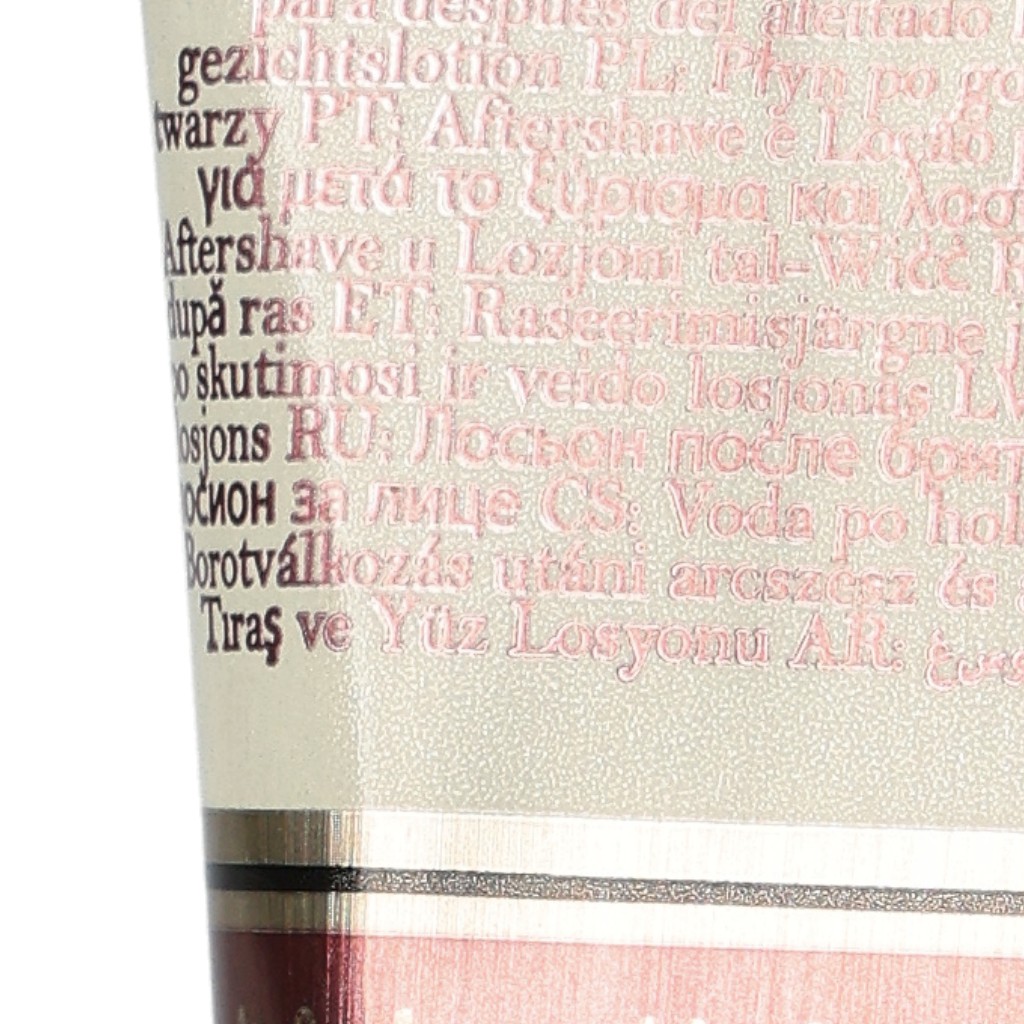 para después del afeitado
gezichtslotion PL: Płyn po go
twarzy PT: Aftershave e Loção
για μετά το ξύρισμα και λοσ
Aftershave u Lozjoni tal-Wiċċ R
după ras ET: Raseerimisjärgne
po skutimosi ir veido losjonas LV
losjons RU: Лосьон после брит
лосион за лице CS: Voda po hol
Borotválkozás utáni arcszesz és
Tıraş ve Yüz Losyonu AR: